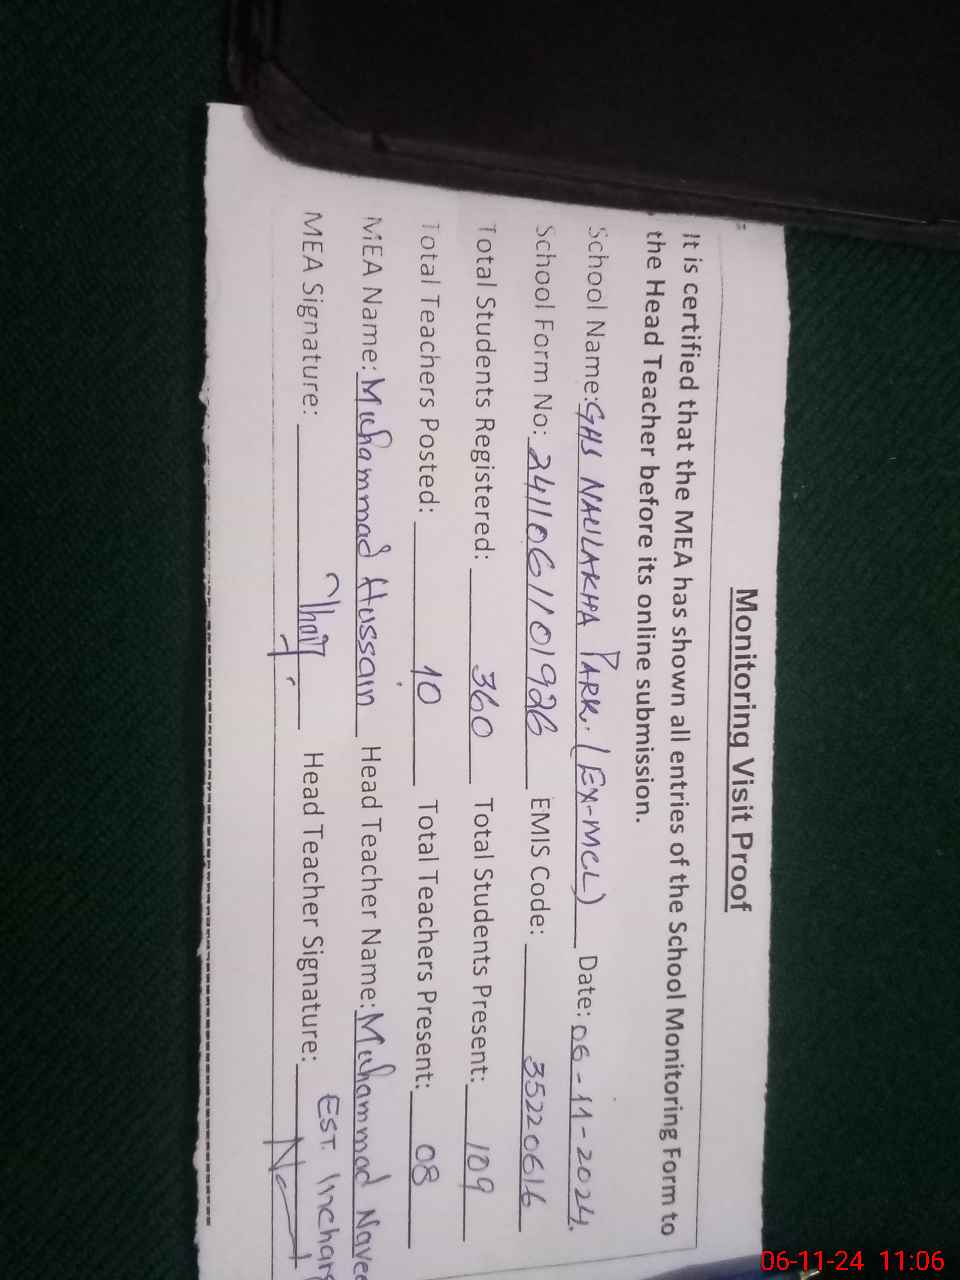 Monitoring Visit Proof
It is certified that the MEA has shown all entries of the School Monitoring Form to
the Head Teacher before its online submission.
School Name: GHS NAULAKHA PARK. (EX-MCL) Date: 06-11-2024.
School Form No: 2411061101926 EMIS Code: 35220616
Total Students Registered: 360 Total Students Present: 109
Total Teachers Posted: 10 Total Teachers Present: 08
MEA Name: Muhammad Hussain Head Teacher Name: Muhammad Navee
EST. Incharg
MEA Signature: Head Teacher Signature:
06-11-24 11:06